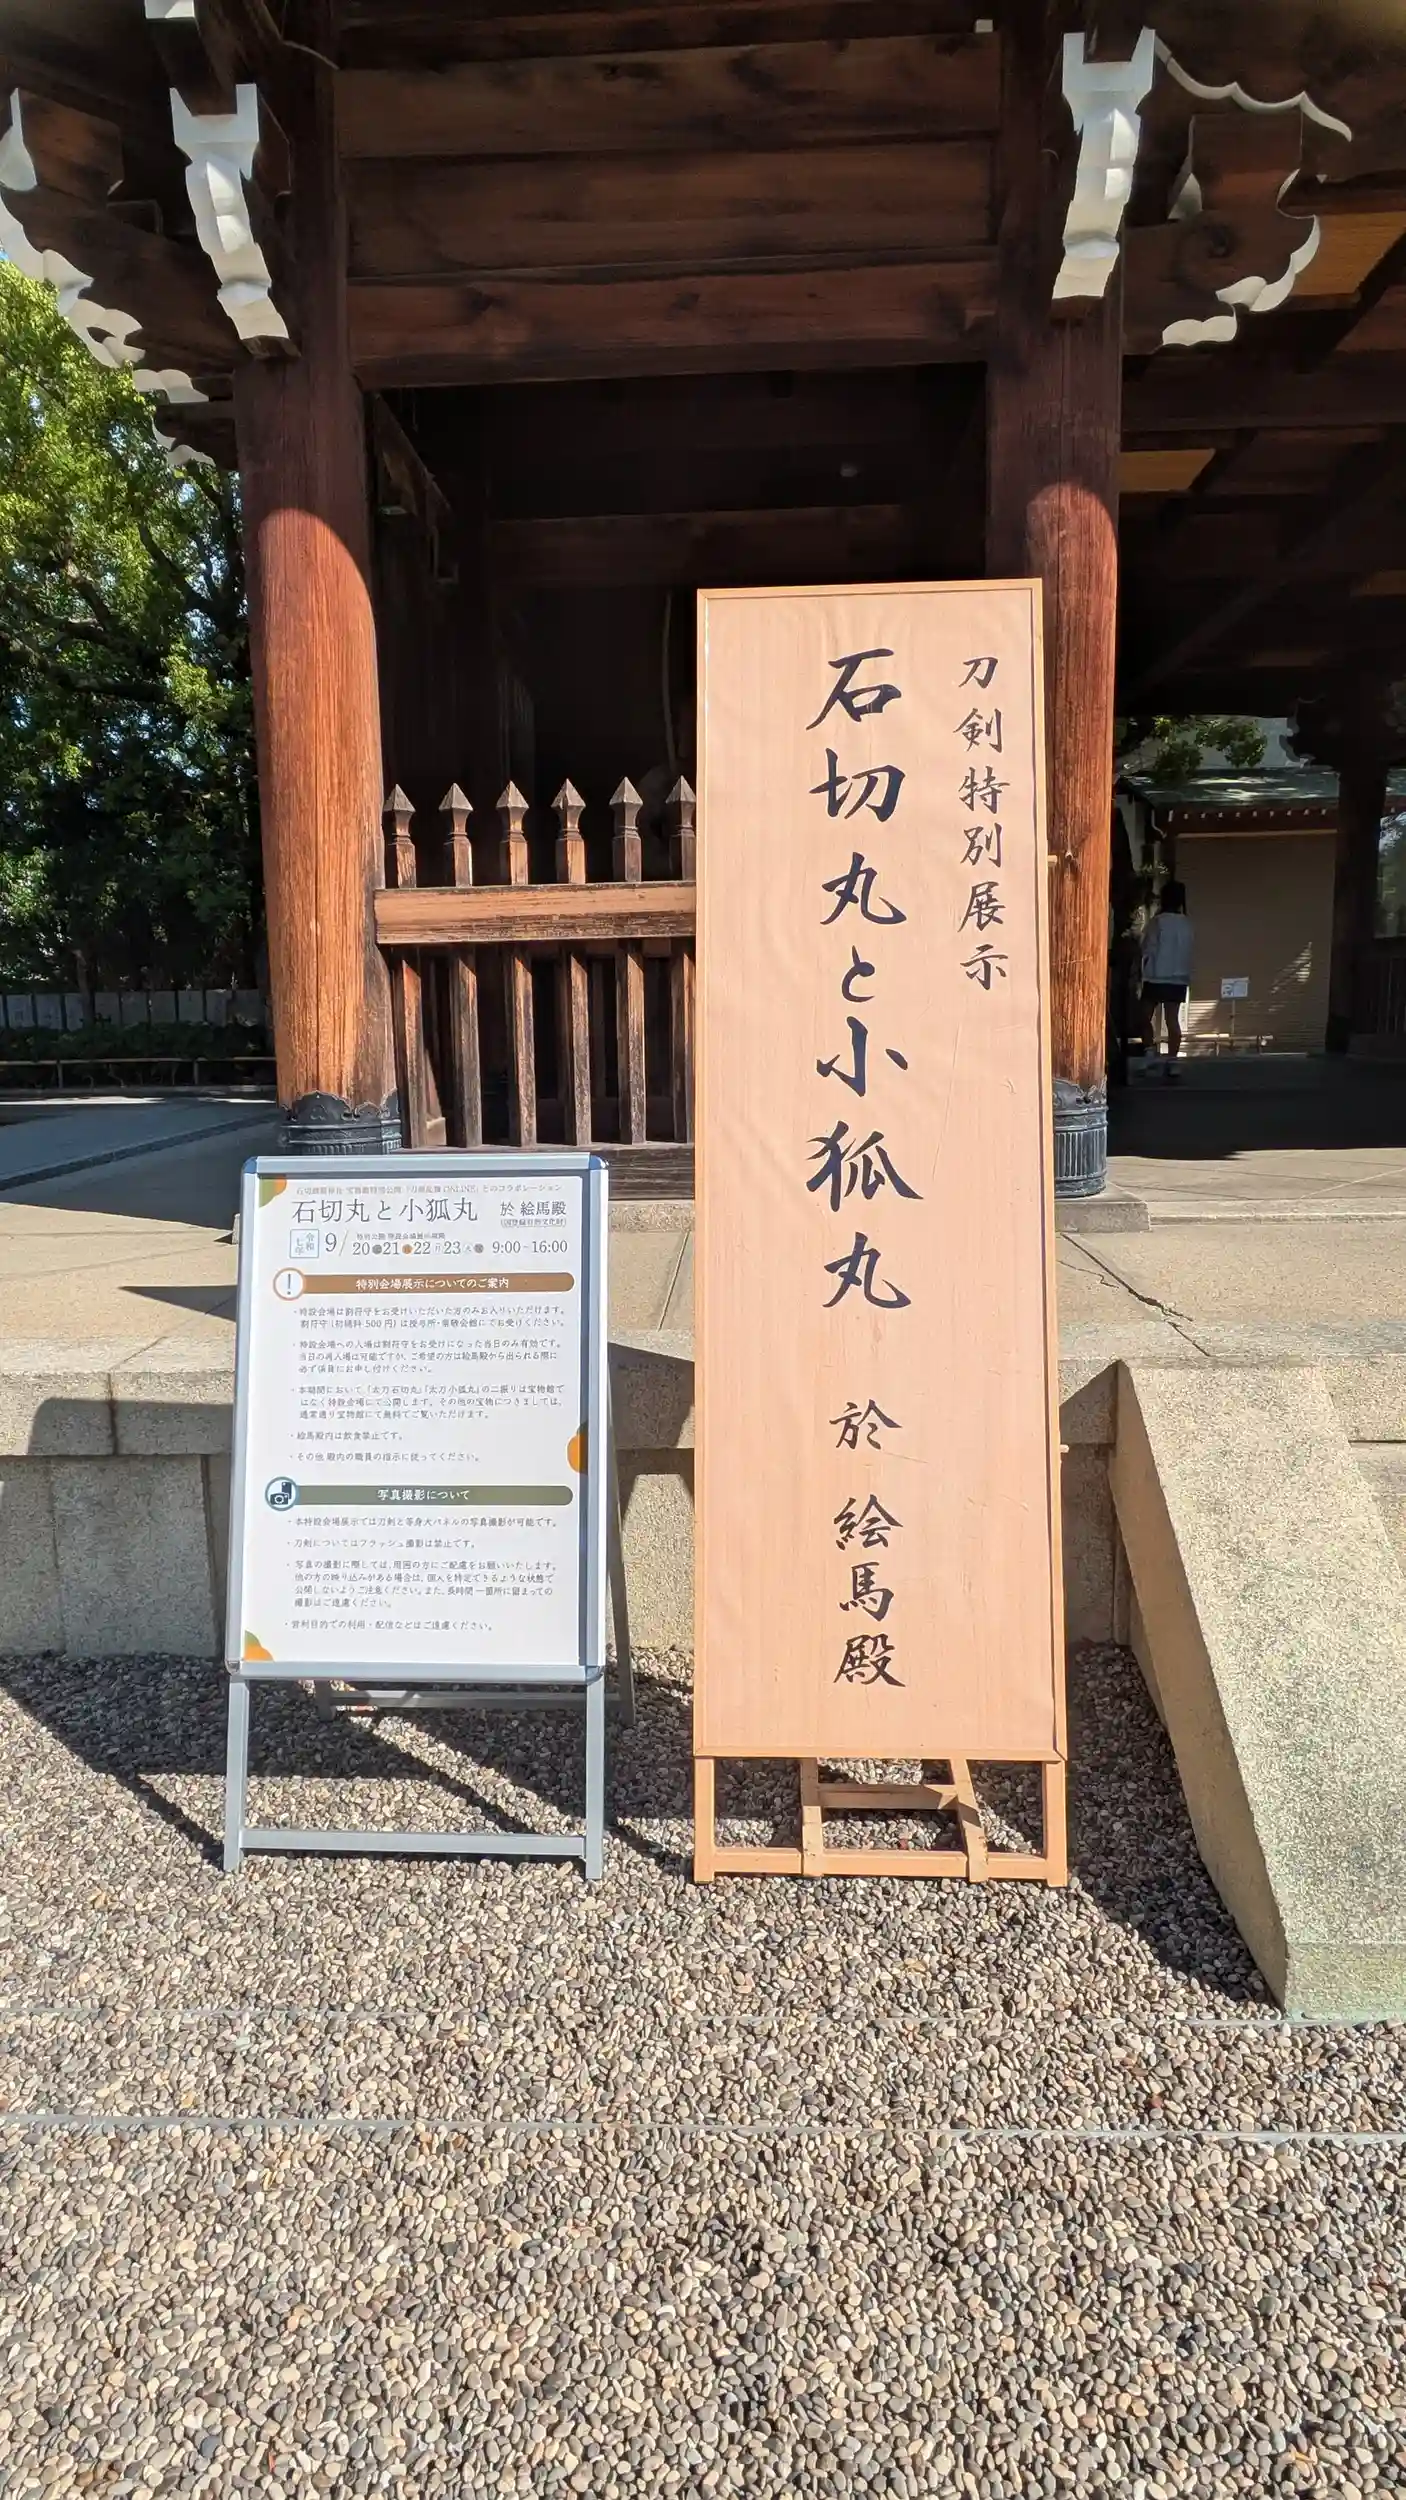 刀剣特別展示
石切丸と小狐丸 於 絵馬殿
石切劔箭神社 宝物館特別公開 「刀剣乱舞ONLINE」とのコラボレーション
石切丸と小狐丸 於 絵馬殿
(国登録有形文化財)
令和七年 9/20土21日22月23火祝 9:00~16:00
特別会場展示についてのご案内
・特設会場は割符守をお受けいただいた方のみお入りいただけます。
割符守(初穂料500円)は授与所・崇敬会館にてお受けください。
・特設会場への入場は割符守をお受けになった当日のみ有効です。
当日の再入場は可能ですが、ご希望の方は絵馬殿から出られる際に
必ず係員にお申し付けください。
・本期間において「太刀石切丸」「太刀小狐丸」の二振りは宝物館で
はなく特設会場にて公開します。その他の宝物につきましては、
通常通り宝物館にて無料でご覧いただけます。
・絵馬殿内は飲食禁止です。
・その他 殿内の職員の指示に従ってください。
写真撮影について
・本特設会場展示では刀剣と等身大パネルの写真撮影が可能です。
・刀剣についてはフラッシュ撮影は禁止です。
・写真の撮影に際しては、周囲の方にご配慮をお願いいたします。
他の方の映り込みがある場合は、個人を特定できるような状態で
公開しないようご注意ください。また、長時間一箇所に留まっての
撮影はご遠慮ください。
・営利目的での利用・配信などはご遠慮ください。